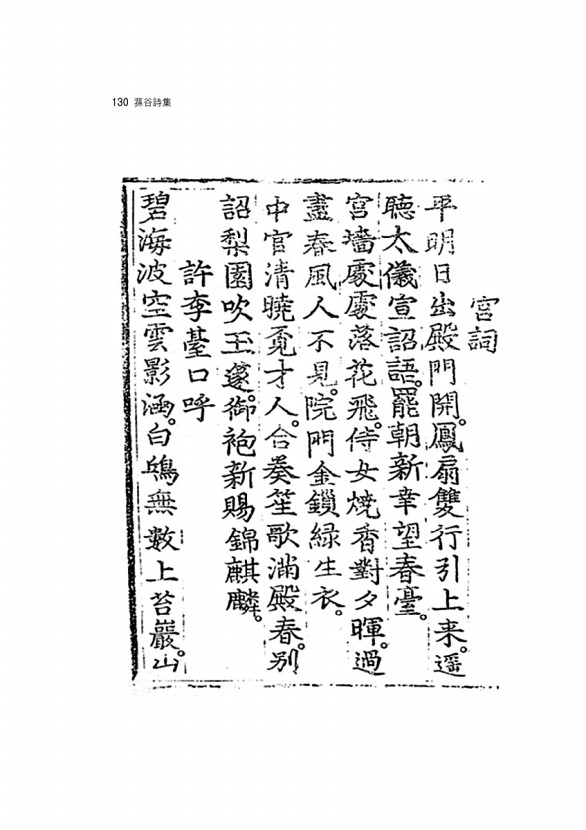 130 蓀谷詩集
宮詞
平明日出殿門開。鳳扇雙行引上来。遥
聴太儀宣詔語。罷朝新幸望春臺。
宮墻處處落花飛。侍女燒香對夕暉。過
盡春風人不見。院門金鎖緑生衣。
中官清曉覔才人。合奏笙歌滿殿春。别
詔梨園吹玉邃。御袍新賜錦麒麟。
許李臺口呼
碧海波空雲影涵。白鴎無數上苔巖。山